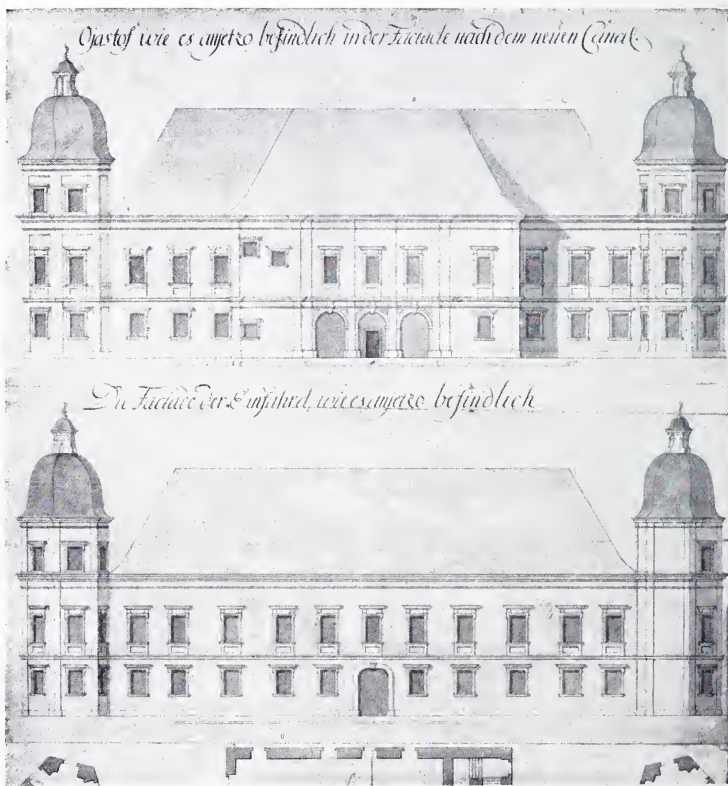 Ojastof wie es anjetzo befindlich in der Faciade nach dem neuen Canal.
Die Faciade der Einfahrd, wie es anjetzo befindlich